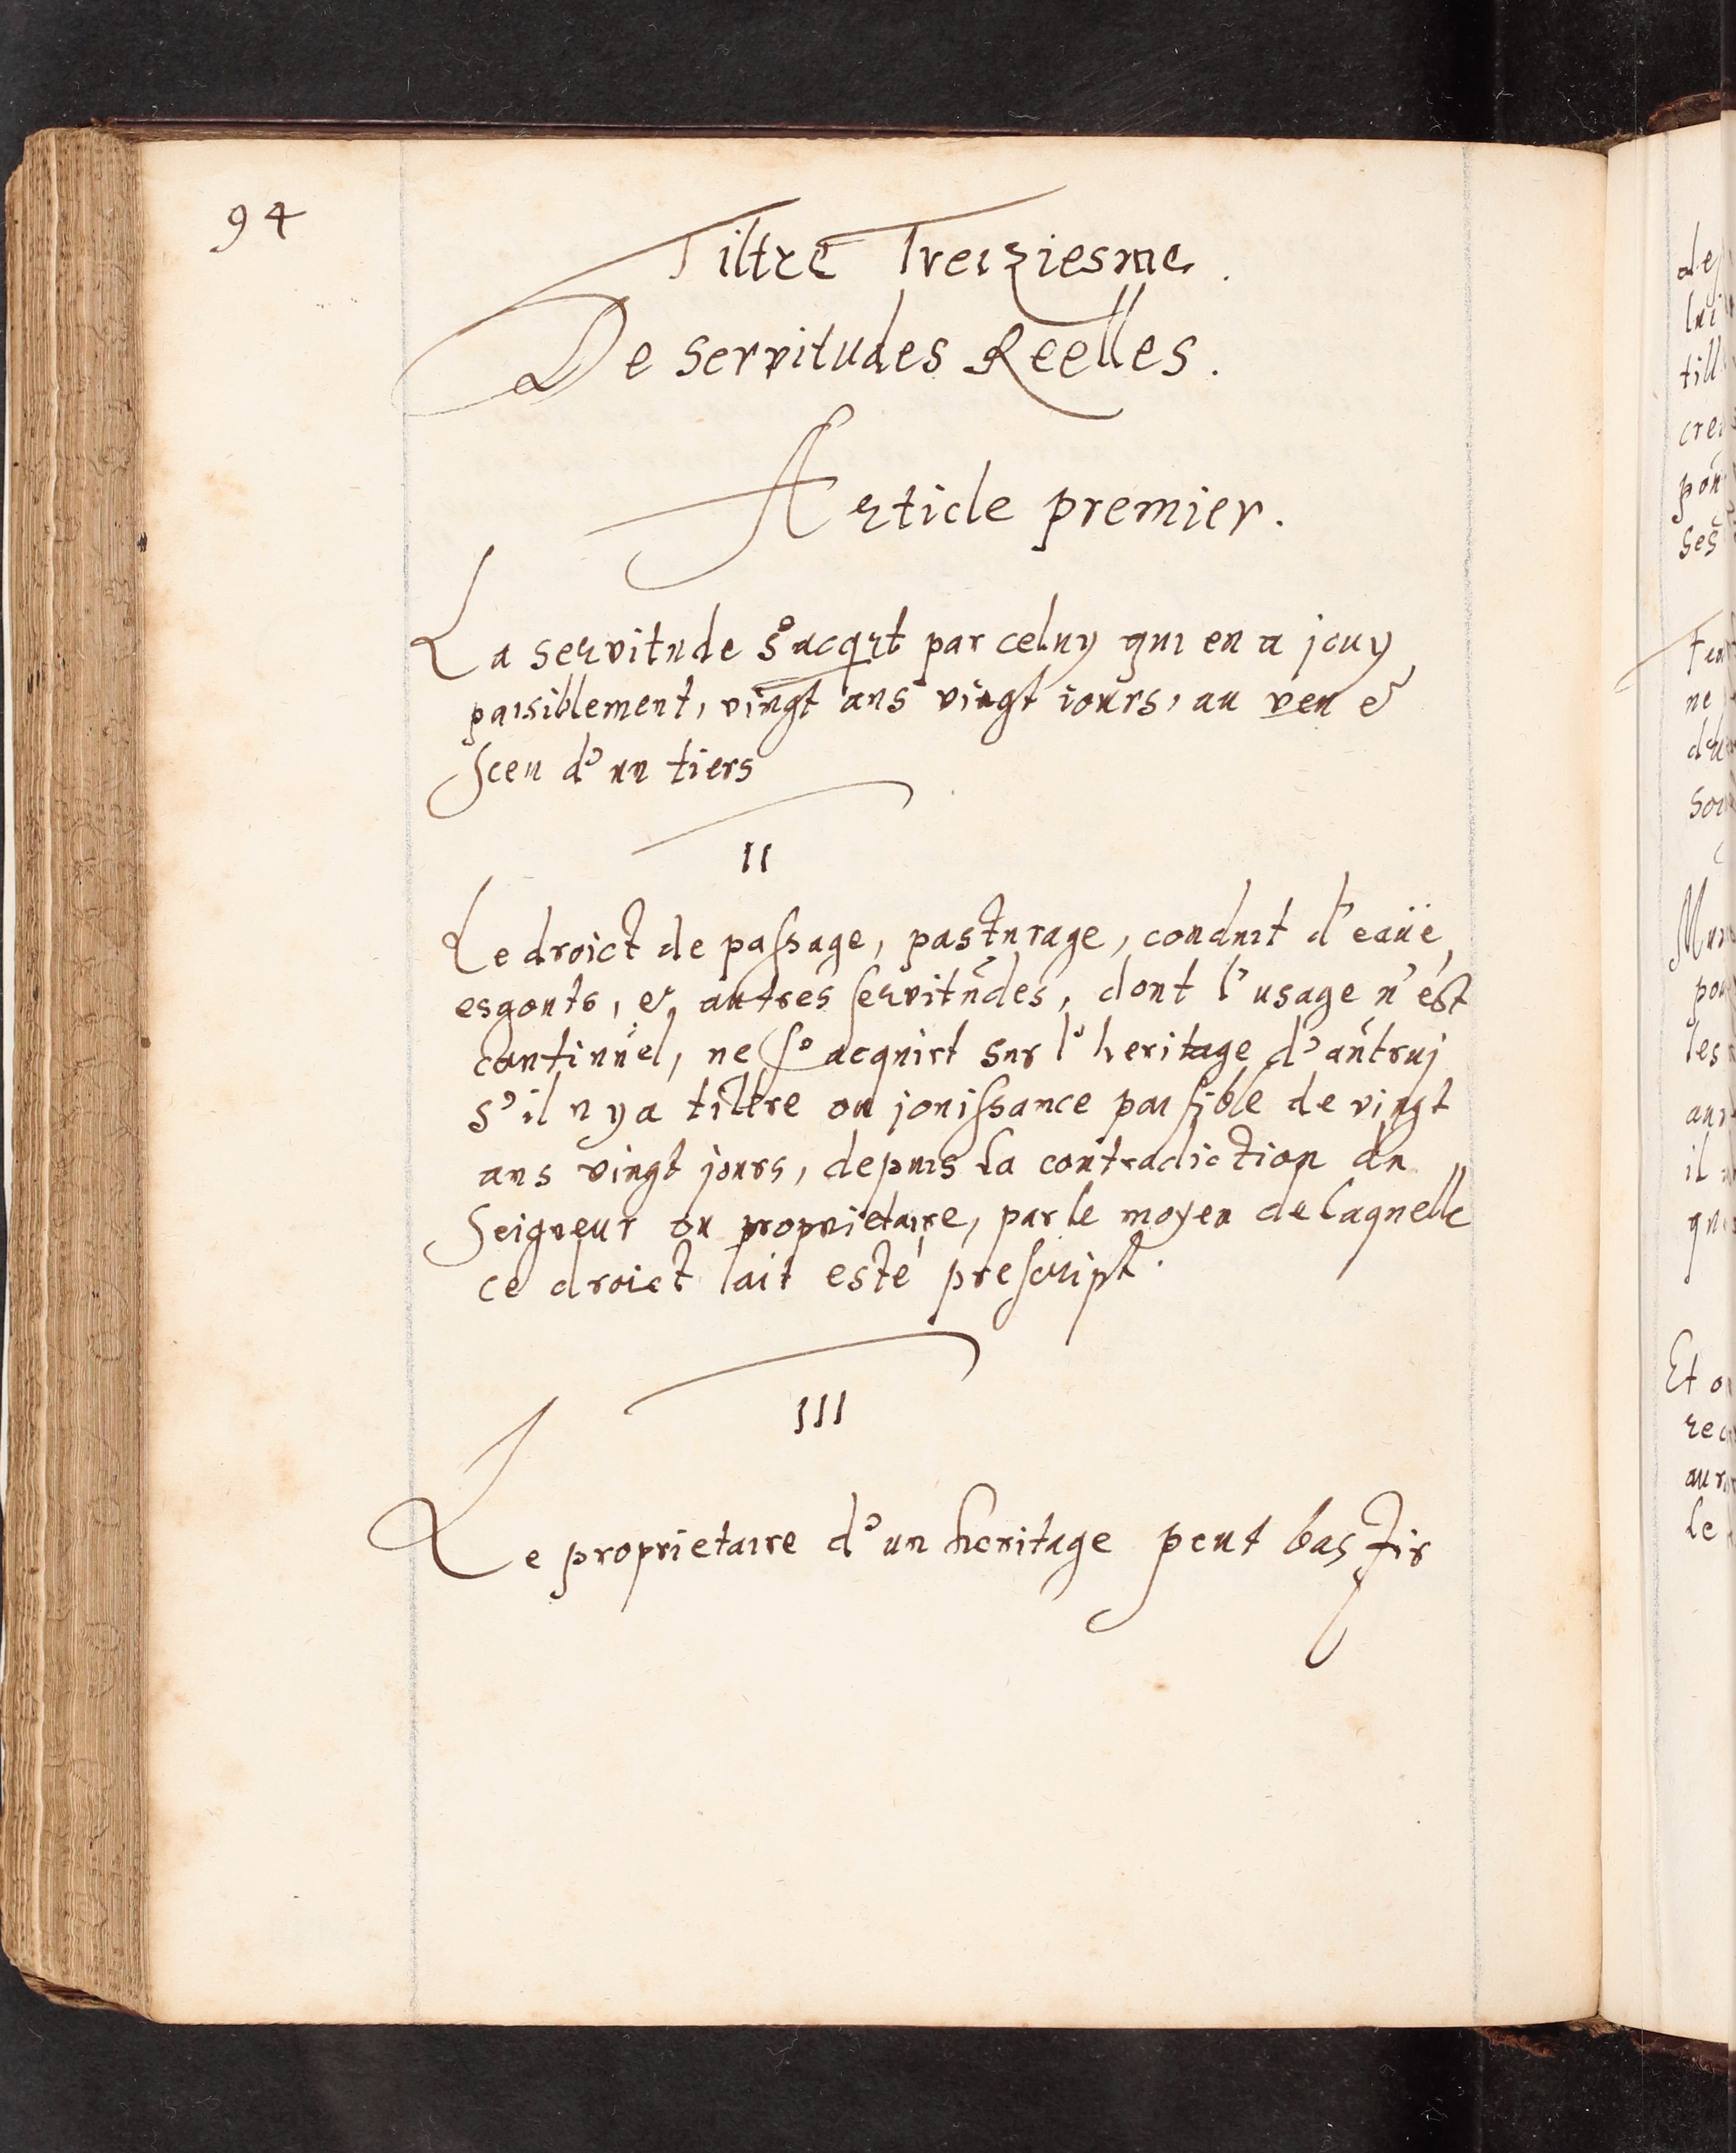 94
Tiltre Treiziesme.
De servitudes Reelles.
Article premier.
La servitude s'acqrt par celuy qui en a jouy
paisiblement, vingt ans vingt iours, au veu &
sceu d'un tiers
II
Le droict de passage, pasturage, conduit d'eaüe,
esgouts, & autres servitudes, dont l'usage n'est
continuel, ne s'acquirt sur l'heritage d'autruj
s'il n y a tiltre ou jouissance paisible de vingt
ans vingt jours, depuis la contradiction du
Seigneur ou proprietaire, par le moyen de laquelle
ce droict lait esté prescript.
III
Le proprietaire d'un heritage peut bastir
de
lui
till
crei
pon
ses
ne
sou
Mur
pou
les
il
Et o
au
le